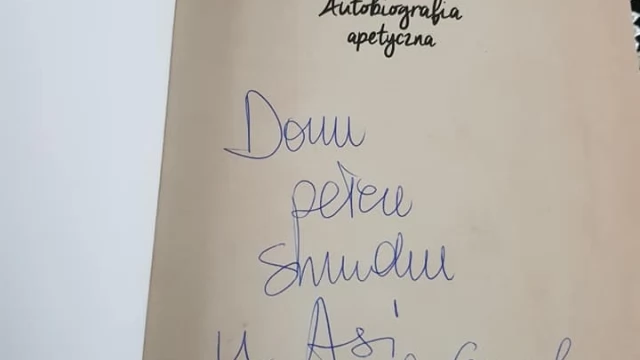 Autobiografia
apetyczna
Domu
pełen
smaku
Asi